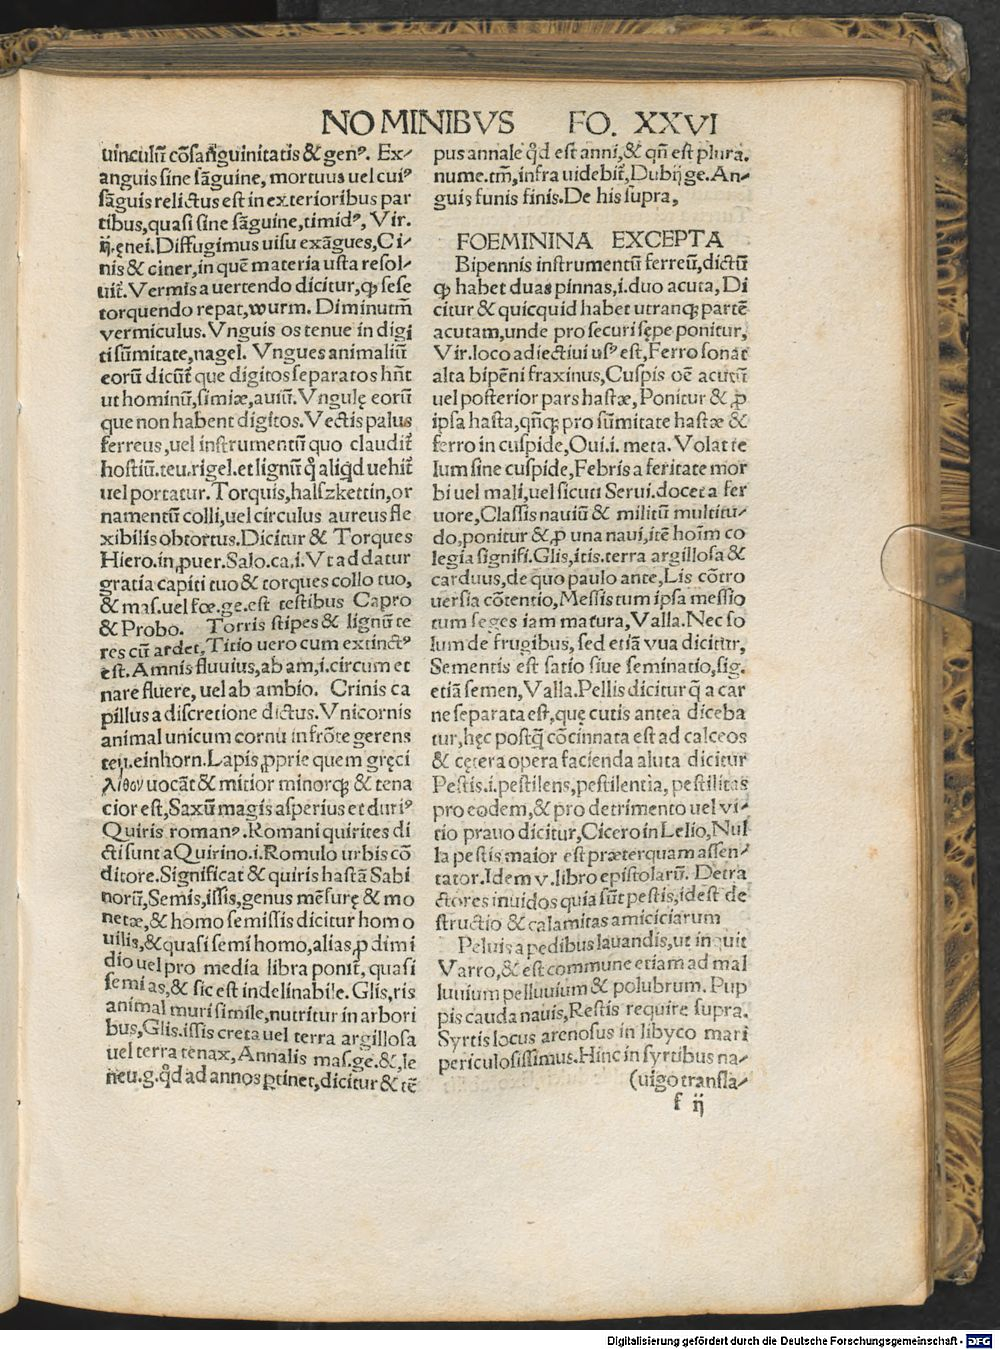 NOMINIBVS FO. XXVI
uinculū cōsanguinitatis & genꝰ. Ex⸗
anguis sine sāguine, mortuus uel cuiꝰ
sāguis relictus est in exterioribus par
tibus, quasi sine sāguine, timidꝰ, Vir.
ij. ęnei. Diffugimus uisu exāgues, Ci⸗
nis & ciner, in quē materia usta resol⸗
uit̃. Vermis a uertendo dicitur, ꝙ sese
torquendo repat, wurm. Diminutm̃
vermiculus. Vnguis os tenue in digi
ti sūmitate, nagel. Vngues animaliū
eorū dicūt̃ que digitos separatos hn̄t
ut hominū, simiæ, auiū. Vngulę eorū
que non habent digitos. Vectis palus
ferreus, uel instrumentū quo claudit̃
hostiū. teu. rigel. et lignū q̊ aliqd uehit̃
uel portatur. Torquis, halszkettin, or
namentū colli, uel circulus aureus fle
xibilis obtortus. Dicitur & Torques
Hiero. in, puer. Salo. ca. i. Vt addatur
gratia capiti tuo & torques collo tuo,
& mas. uel fœ. ge. est testibus Capro
& Probo. Torris stipes & lignū te
res cū ardet, Titio uero cum extinctꝰ
est. Amnis fluuius, ab am, i. circum et
nare fluere, uel ab ambio. Crinis ca
pillus a discretione dictus. Vnicornis
animal unicum cornu in frōte gerens
teu. einhorn. Lapis, ꝓprie quem gręci
λιθον uocāt & mitior minorq; & tena
cior est, Saxū magis asperius et duriꝰ
Quiris romanꝰ. Romani quirites di
cti sunt a Quirino. i. Romulo urbis cō
ditore. Significat & quiris hastā Sabi
norū, Semis, issis, genus mēsurę & mo
netæ, & homo semissis dicitur homo
uilis, & quasi semihomo, alias, ꝓ dimi
dio uel pro media libra ponit̃, quasi
semi as, & sic est indelinabile. Glis, ris
animal muri simile, nutritur in arbori
bus, Glis. issis creta uel terra argillosa
uel terra tenax, Annalis mas. ge. &, le
neu. g. qd ad annos ꝑtinet, dicitur & tē
pus annale qd est anni, & qn̄ est plura.
nume. tm̄, infra uidebit̃, Dubij ge. An⸗
guis funis finis. De his supra,
FOEMININA EXCEPTA
Bipennis instrumentū ferreū, dictū
ꝙ habet duas pinnas, i. duo acuta, Di
citur & quicquid habet utranq; partē
acutam, unde pro securi sępe ponitur,
Vir. loco adiectiui usꝰ est, Ferro sonat
alta bipēni fraxinus, Cuspis oē acutū
uel posterior pars hastæ, Ponitur & ꝓ
ipsa hasta, qn̄q; pro sūmitate hastæ &
ferro in cuspide, Oui. i. meta. Volat te
lum sine cuspide, Febris a feritate mor
bi uel mali, uel sicuti Serui. docet a fer
uore, Classis nauiū & militū multitu⸗
do, ponitur & ꝓ una naui, itē hoīm co
legia signifi. Glis, itis. terra argillosa &
carduus, de quo paulo ante, Lis cōtro
uersia cōtentio, Messis tum ipsa messio
tum seges iam matura, Valla. Nec so
lum de frugibus, sed etiā vua dicitur,
Sementis est satio siue seminatio, sig.
etiā semen, Valla. Pellis dicitur q̄ a car
ne separata est, quę cutis antea diceba
tur, hęc postq̄ cōcinnata est ad calceos
& cętera opera facienda aluta dicitur
Pestis. i. pestilens, pestilentia, pestilitas
pro eodem, & pro detrimento uel vi⸗
tio prauo dicitur, Cicero in Lelio, Nul
la pestis maior est præterquam assen⸗
tator. Idem v. libro epistolarū. Detra
ctores inuidos quia sūt pestis, id est de
structio & calamitas amiciciarum
Peluis a pedibus lauandis, ut inquit
Varro, & est commune etiam ad mal
luuium pelluuium & polubrum. Pup
pis cauda nauis, Restis require supra.
Syrtis locus arenosus in libyco mari
periculosissimus. Hinc in syrtibus na⸗
(uigo transla⸗
f ij
Digitalisierung gefördert durch die Deutsche Forschungsgemeinschaft - DFG